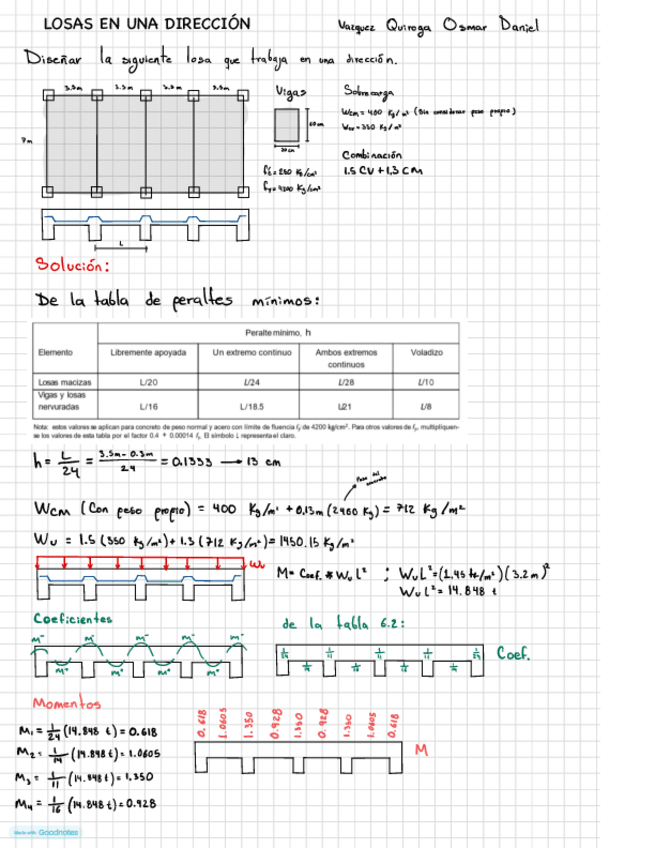 LOSAS EN UNA DIRECCIÓN
Vazquez Quiroga Osmar Daniel
Diseñar la siguiente losa que trabaja en una dirección.
3.5m 3.5m 3.5m 3.5m
Vigas
Sobrecarga
Wcm = 400 Kg/m² (Sin considerar peso propio)
60 cm
7m
30 cm
Combinación
1.5 CV + 1.3 CM
f'c = 250 Kg/cm²
fy = 4200 Kg/cm²
L
Solución:
De la tabla de peraltes mínimos:
Peralte mínimo, h
Elemento Libremente apoyada Un extremo continuo Ambos extremos continuos Voladizo
Losas macizas L/20 L/24 L/28 L/10
Vigas y losas nervuradas L/16 L/18.5 L21 L/8
Nota: estos valores se aplican para concreto de peso normal y acero con límite de fluencia fy de 4200 kg/cm². Para otros valores de fy, multipliquen-
se los valores de esta tabla por el factor 0.4 + 0.00014 fy. El símbolo L representa el claro.
h = L/24 = 3.5m - 0.3m/24 = 0.1333 → 13 cm
Peso del concreto
Wcm (Con peso propio) = 400 Kg/m² + 0.13m (2400 Kg) = 712 Kg/m²
Wu = 1.5 (350 Kg/m²) + 1.3 (712 Kg/m²) = 1450.15 Kg/m²
Wu
M = Coef. * Wu L² ; Wu L² = (1.45 tn/m²)(3.2m)²
Wu L² = 14.848 t
Coeficientes
de la tabla 6.2:
M⁻ M⁻ M⁻ M⁻ M⁻
M⁺ M⁺ M⁺ M⁺
1/24 1/11 1/11 1/11 1/24
1/14 1/16 1/16 1/14
Coef.
Momentos
0.618 1.0605 1.350 0.928 1.350 0.928 1.350 1.0605 0.618
M
M₁ = 1/24 (14.848 t) = 0.618
M₂ = 1/14 (14.848 t) = 1.0605
M₃ = 1/11 (14.848 t) = 1.350
M₄ = 1/16 (14.848 t) = 0.928
Made with Goodnotes